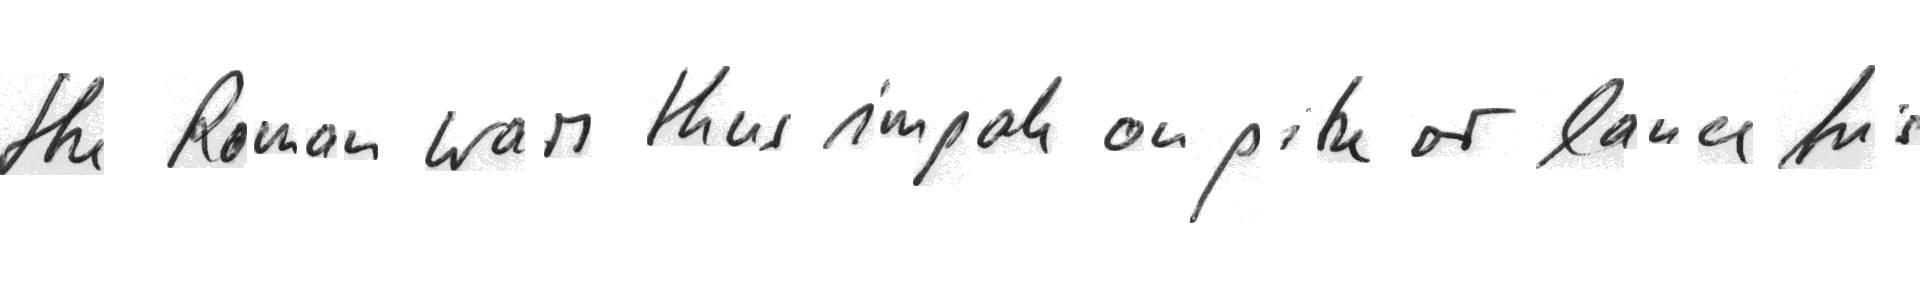 the Roman wars thus impale on pike or lance his